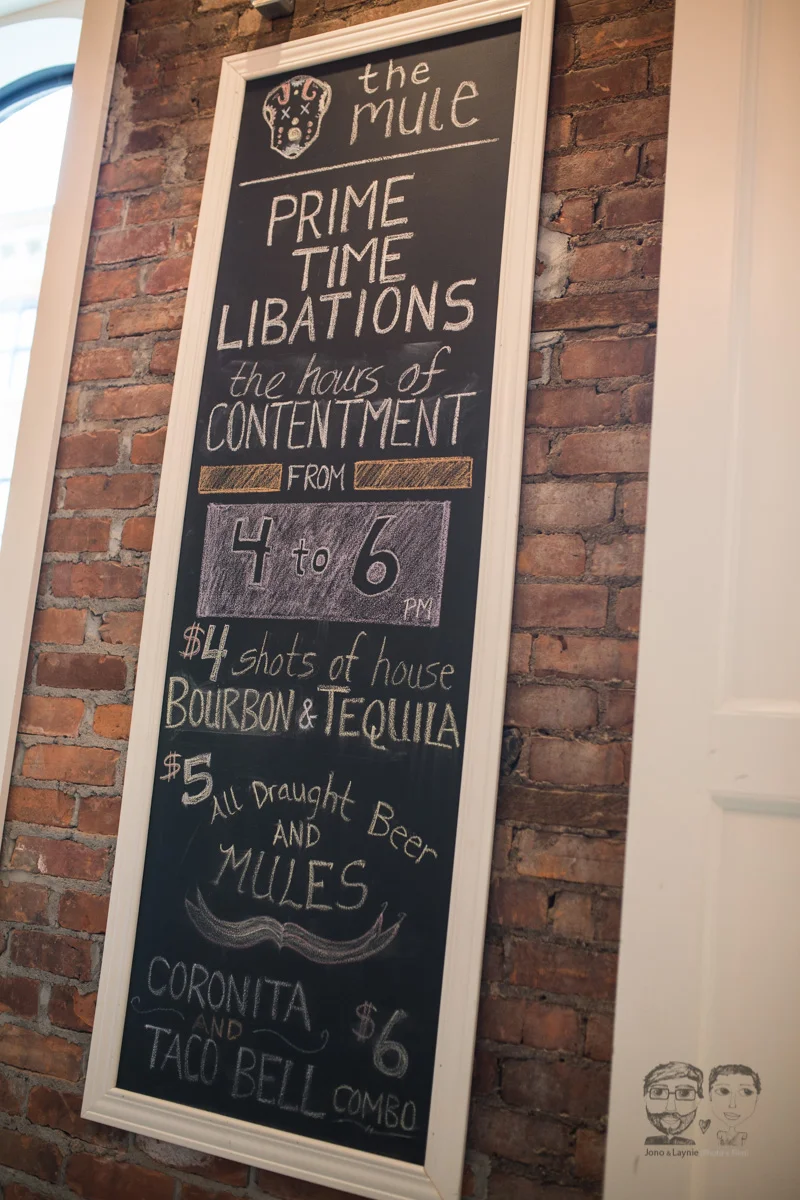 the
mule
PRIME
TIME
LIBATIONS
the hours of
CONTENTMENT
FROM
4 to 6
PM
$4 shots of house
BOURBON & TEQUILA
$5 All Draught Beer
AND
MULES
CORONITA
AND
TACO BELL
$6
COMBO
Jono & Laynie